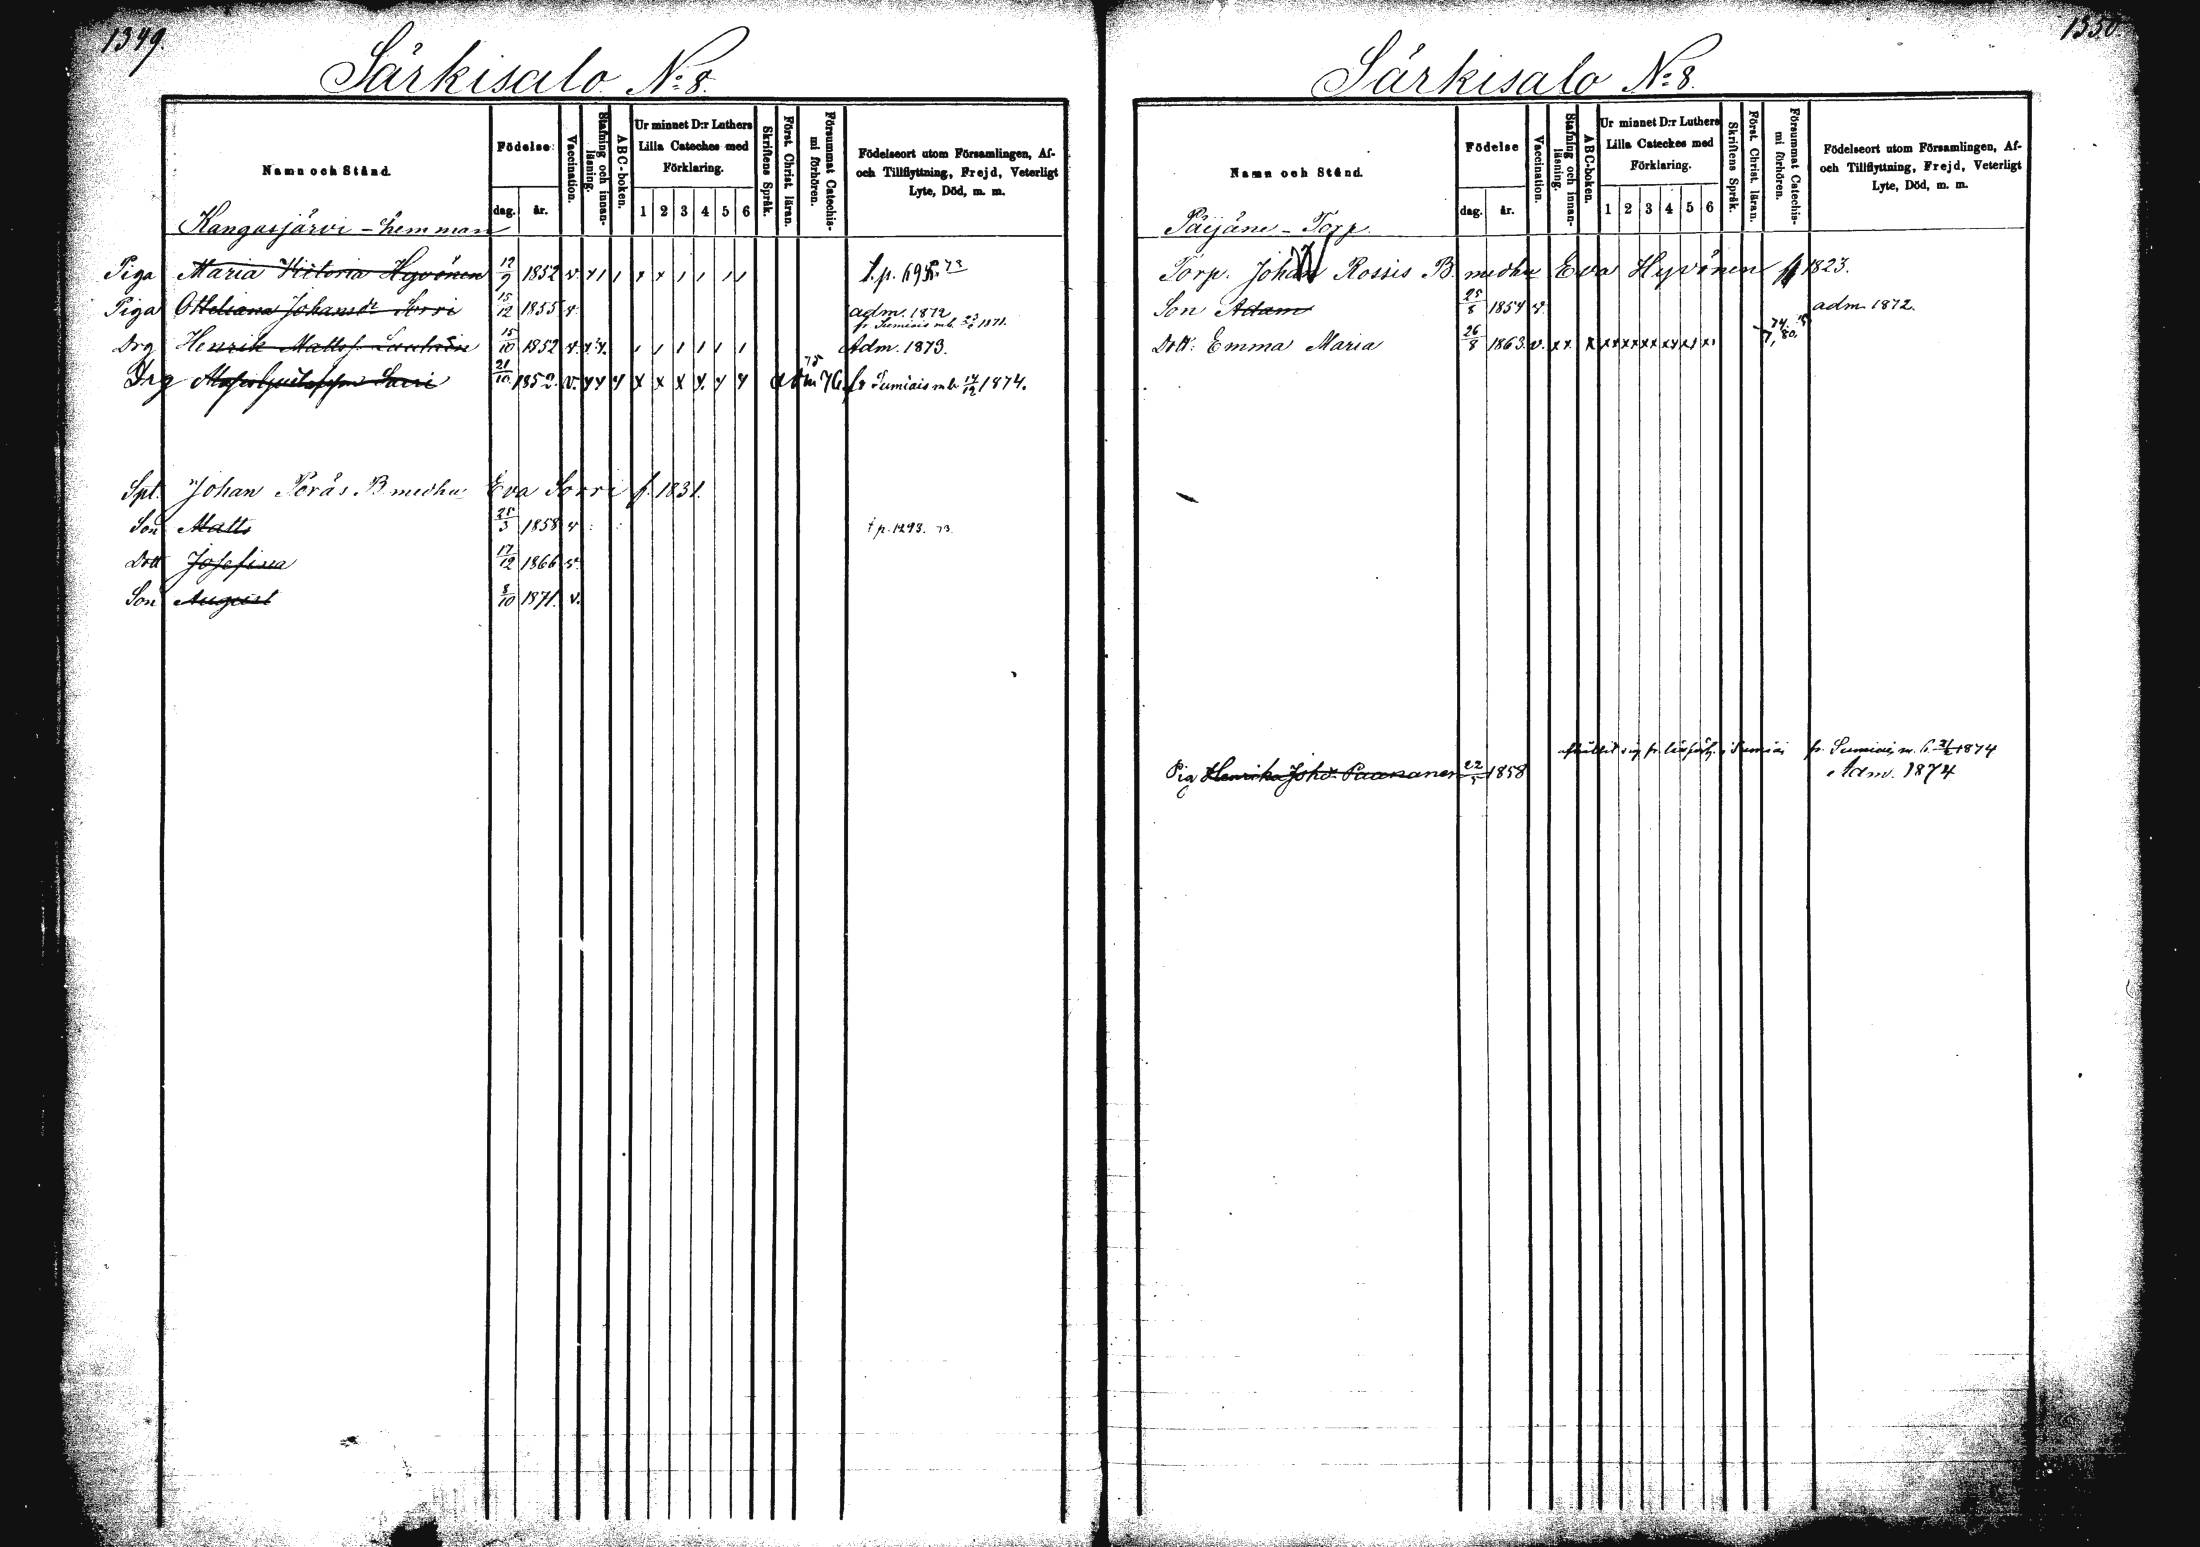 1349.
Särkisalo N:o 8.
Namn och Stånd.
Födelse
dag. år.
Vaccination.
Stafning och innan-läsning.
ABC-boken.
Ur minnet D:r Luthers
Lilla Cateches med
Förklaring.
1 2 3 4 5 6
Skriftens Språk.
Först. Christ. läran.
Försummat Catechis-
mi förhören.
Födelseort utom Församlingen, Af-
och Tillflyttning, Frejd, Veterligt
Lyte, Död, m. m.
Kangasjärvi - hemman
Piga Maria Victoria Hyvönen 12/9 1852 v. x 1 1 x x 1 1 1 1 t.p. 695. 73
Piga Otteliana Johansdr Sorri 15/12 1855 v. adm. 1872
fr. Sumiais mb. 1871.
Drg Henrik Mattss. 15/10 1852 v. Adm. 1873.
Drg 21/10 1852. v. x x x x x x x x x adm 76 fr Sumiais mb 14/12 1874.
75
Spt. Johan Porás B medhu Eva Sorri f. 1831.
Son Matts 25/3 1858 v t p. 1293. 73.
Dott Josefina 17/12 1866 v.
Son August 8/10 1871. v.
1350.
Särkisalo N:o 8.
Namn och Stånd.
Födelse
dag. år.
Vaccination.
Stafning och innan-läsning.
ABC-boken.
Ur minnet D:r Luthers
Lilla Cateches med
Förklaring.
1 2 3 4 5 6
Skriftens Språk.
Först. Christ. läran.
Försummat Catechis-
mi förhören.
Födelseort utom Församlingen, Af-
och Tillflyttning, Frejd, Veterligt
Lyte, Död, m. m.
Päijäne - Torp.
Torp. Johan Rossis B medhu Eva Hyvönen f 1823.
Son Adam 25/8 1854 v. adm 1872.
Dott: Emma Maria 26/8 1863. v. xx x xx xx xx xx x1 x1
fr. Sumiais m. b. 1874
Pig Henrika Johdr Paananen 22/5 1858 Adm. 1874